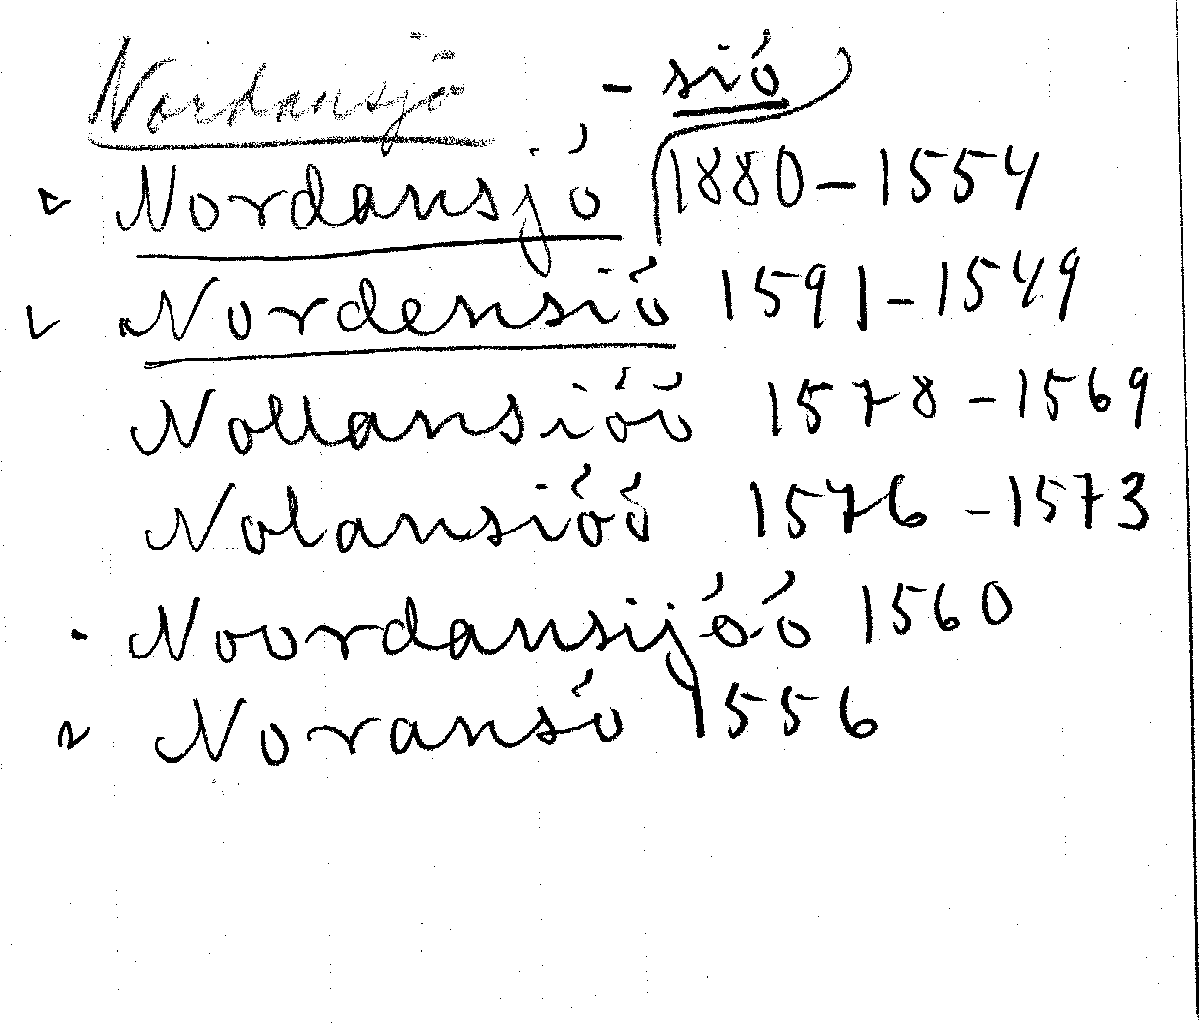 Nordansjö - sió
Nordansjó 1880-1554
Nordensió 1591-1549
Nollansióó 1578-1569
Nolansióó 1576-1573
Noordansijóó 1560
Noransó 1556